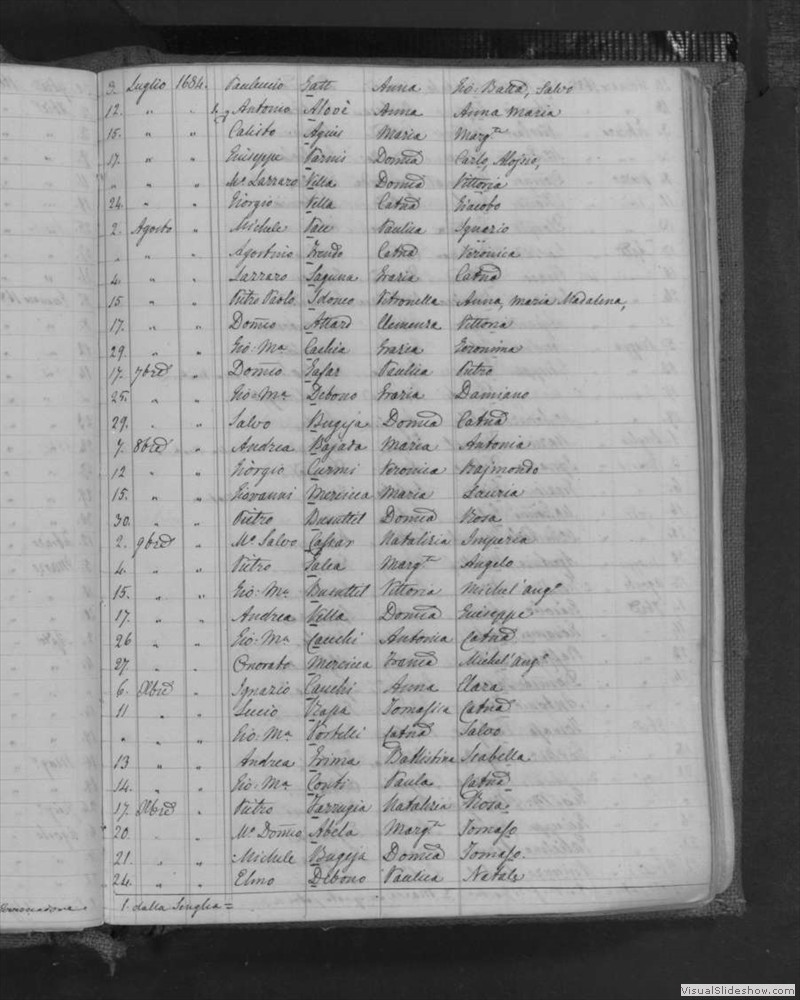 3. Luglio 1684. Paulucio Gatt Anna Gio: Batta, Salvo
12. " " Antonio Alovè Anna Anna Maria
15. " " Calisto Agius Maria Marga
17. " " Giuseppe Farnis Domca Carlo, Alojsio,
" " " Mo Lazzaro Villa Domca Vittoria
24. " " Giorgio Vella Catna Giacobo
2. Agosto " Michele Pace Paulica Ignazio
" " " Agostino Zrendo Catna Veronica
4. " " Lazzaro Laguna Grazia Catna
15 " " Pietro Paolo Idoneo Petronella Anna, Maria Madalena,
17. " " Domco Attard Clemenza Vittoria
29. " " Gio: Ma Cachia Grazia Geronima
17. 7bre " Domco Gafar Paulica Pietro
25. " " Gio: Ma Debono Grazia Damiano
29. " " Salvo Bugeja Domca Catna
7. 8bre " Andrea Bajada Maria Antonia
12 " " Giorgio Curmi Veronica Rajmondo
15. " " Giovanni Mercieca Maria Lauria
30. " " Pietro Busuttel Domca Rosa
2. 9bre " Mo Salvo Caspar Natalizia Imperia
4. " " Pietro Galea Marga Angelo
15. " " Gio: Ma Busuttel Vittoria Michel'ango
17. " " Andrea Villa Domca Giuseppe
26 " " Gio: Ma Cauchi Antonia Catna
27 " " Onorato Mercieca Franca Michel'ango
6. Xbre " Ignazio Cauchi Anna Clara
11 " " Lucio Psapa Tomasia Catna
" " " Gio: Ma Portelli Catna Salvo
13 " " Andrea Grima Battistina Isabella
14. " " Gio: Ma Conti Paula Catna
17. Xbre " Pietro Farrugia Natalizia Rosa
20. " " Mo Domco Abela Marga Tomaso
21. " " Michele Bugeja Domca Tomaso.
24. " " Elmo Debono Paulica Natale
1. dalla Senglea =